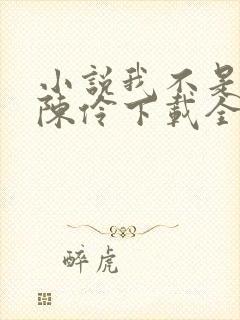 小説我不是
陳伶下載全
醉虎